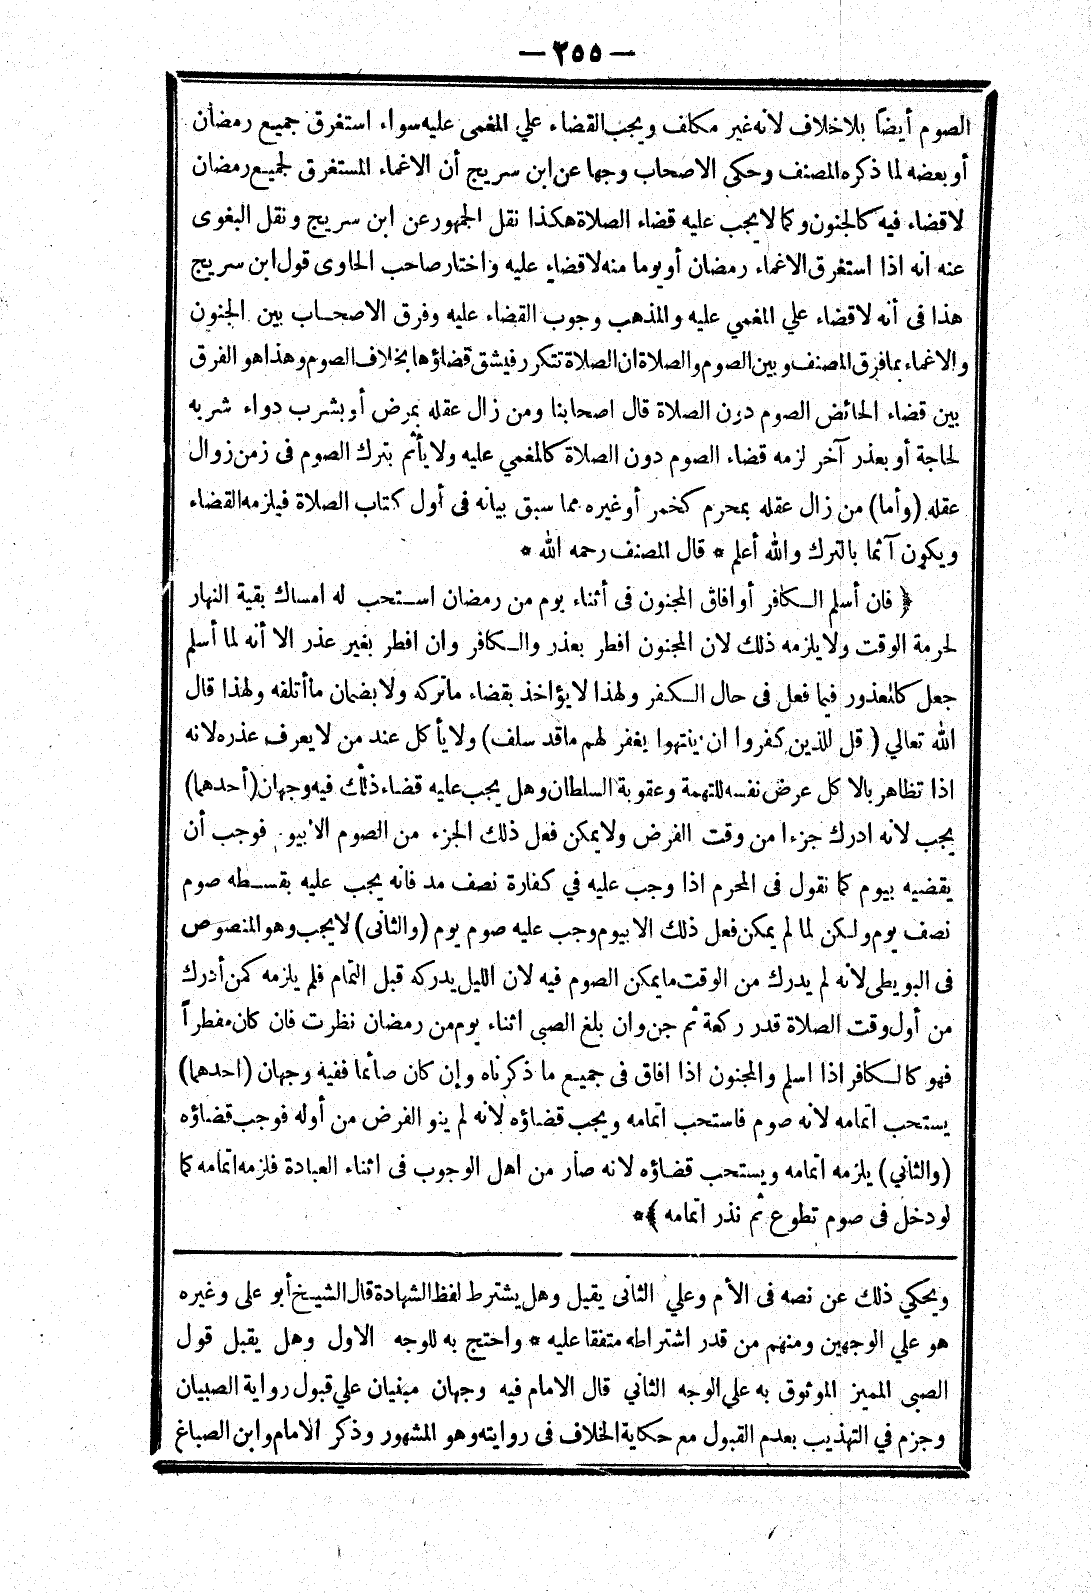 — ٢٥٥ —
الصوم أيضاً بلاخلاف لانه غير مكلف ويجب القضاء علي المغمى عليه سواء استغرق جميع رمضان
أو بعضه لما ذكره المصنف وحكى الاصحاب وجها عن ابن سريج أن الاغماء المستغرق لجميع رمضان
لاقضاء فيه كالجنون وكما لايجب عليه قضاء الصلاة هكذا نقل الجمهور عن ابن سريج ونقل البغوى
عنه انه اذا استغرق الاغماء رمضان أو يوما منه لاقضاء عليه واختار صاحب الحاوى قول ابن سريج
هذا فى أنه لاقضاء علي المغمي عليه والمذهب وجوب القضاء عليه وفرق الاصحـاب بين الجنون
والاغماء بما فرق المصنف وبين الصوم والصلاة ان الصلاة تتكرر فيشق قضاؤها بخلاف الصوم وهذا هو الفرق
بين قضاء الحائض الصوم دون الصلاة قال اصحابنا ومن زال عقله بمرض أو بشرب دواء شربه
لحاجة أو بعذر آخر لزمه قضاء الصوم دون الصلاة كالمغمي عليه ولا يأثم بترك الصوم فى زمن زوال
عقله (وأما) من زال عقله بمحرم كخمر أو غيره مما سبق بيانه فى أول كتاب الصلاة فيلزمه القضاء
ويكون آثما بالترك والله أعلم * قال المصنف رحمه الله *
﴿ فان أسلم الـكافر أو افاق المجنون فى أثناء يوم من رمضان استحب له امساك بقية النهار
لحرمة الوقت ولا يلزمه ذلك لان المجنون افطر بعذر والـكافر وان افطر بغير عذر الا أنه لما أسلم
جعل كالمعذور فيما فعل فى حال الـكفر ولهذا لايؤاخذ بقضاء ماتركه ولا بضمان ماأتلفه ولهذا قال
الله تعالي ( قل للذين كفروا ان ينتهوا يغفر لهم ماقد سلف) ولا يأكل عند من لا يعرف عذره لانه
اذا تظاهر بالاكل عرض نفسه للتهمة وعقوبة السلطان وهل يجب عليه قضاء ذلك فيه وجهان (أحدهما)
يجب لانه ادرك جزءا من وقت الفرض ولا يمكن فعل ذلك الجزء من الصوم الا بيوم فوجب أن
يقضيه بيوم كما نقول فى المحرم اذا وجب عليه في كفارة نصف مد فانه يجب عليه بقسطه صوم
نصف يوم ولكن لما لم يمكن فعل ذلك الا بيوم وجب عليه صوم يوم (والثانى) لا يجب وهو المنصوص
فى البويطى لانه لم يدرك من الوقت مايمكن الصوم فيه لان الليل يدركه قبل التمام فلم يلزمه كمن أدرك
من أول وقت الصلاة قدر ركعة ثم جن وان بلغ الصبى اثناء يوم من رمضان نظرت فان كان مفطراً
فهو كالـكافر اذا اسلم والمجنون اذا افاق فى جميع ما ذكرناه وإن كان صائما ففيه وجهان (احدهما)
يستحب اتمامه لانه صوم فاستحب اتمامه ويجب قضاؤه لانه لم ينو الفرض من أوله فوجب قضاؤه
(والثاني) يلزمه اتمامه ويستحب قضاؤه لانه صار من اهل الوجوب فى اثناء العبادة فلزمه اتمامه كما
لو دخل فى صوم تطوع ثم نذر اتمامه ﴾*
ويحكي ذلك عن نصه فى الأم وعلي الثانى يقبل وهل يشترط لفظ الشهادة قال الشيخ أبو على وغيره
هو علي الوجهين ومنهم من قدر اشتراطه متفقا عليه * واحتج به للوجه الاول وهل يقبل قول
الصبى المميز الموثوق به علي الوجه الثاني قال الامام فيه وجهان مبنيان علي قبول رواية الصبيان
وجزم في التهذيب بعدم القبول مع حكاية الخلاف فى روايته وهو المشهور وذكر الامام وابن الصباغ